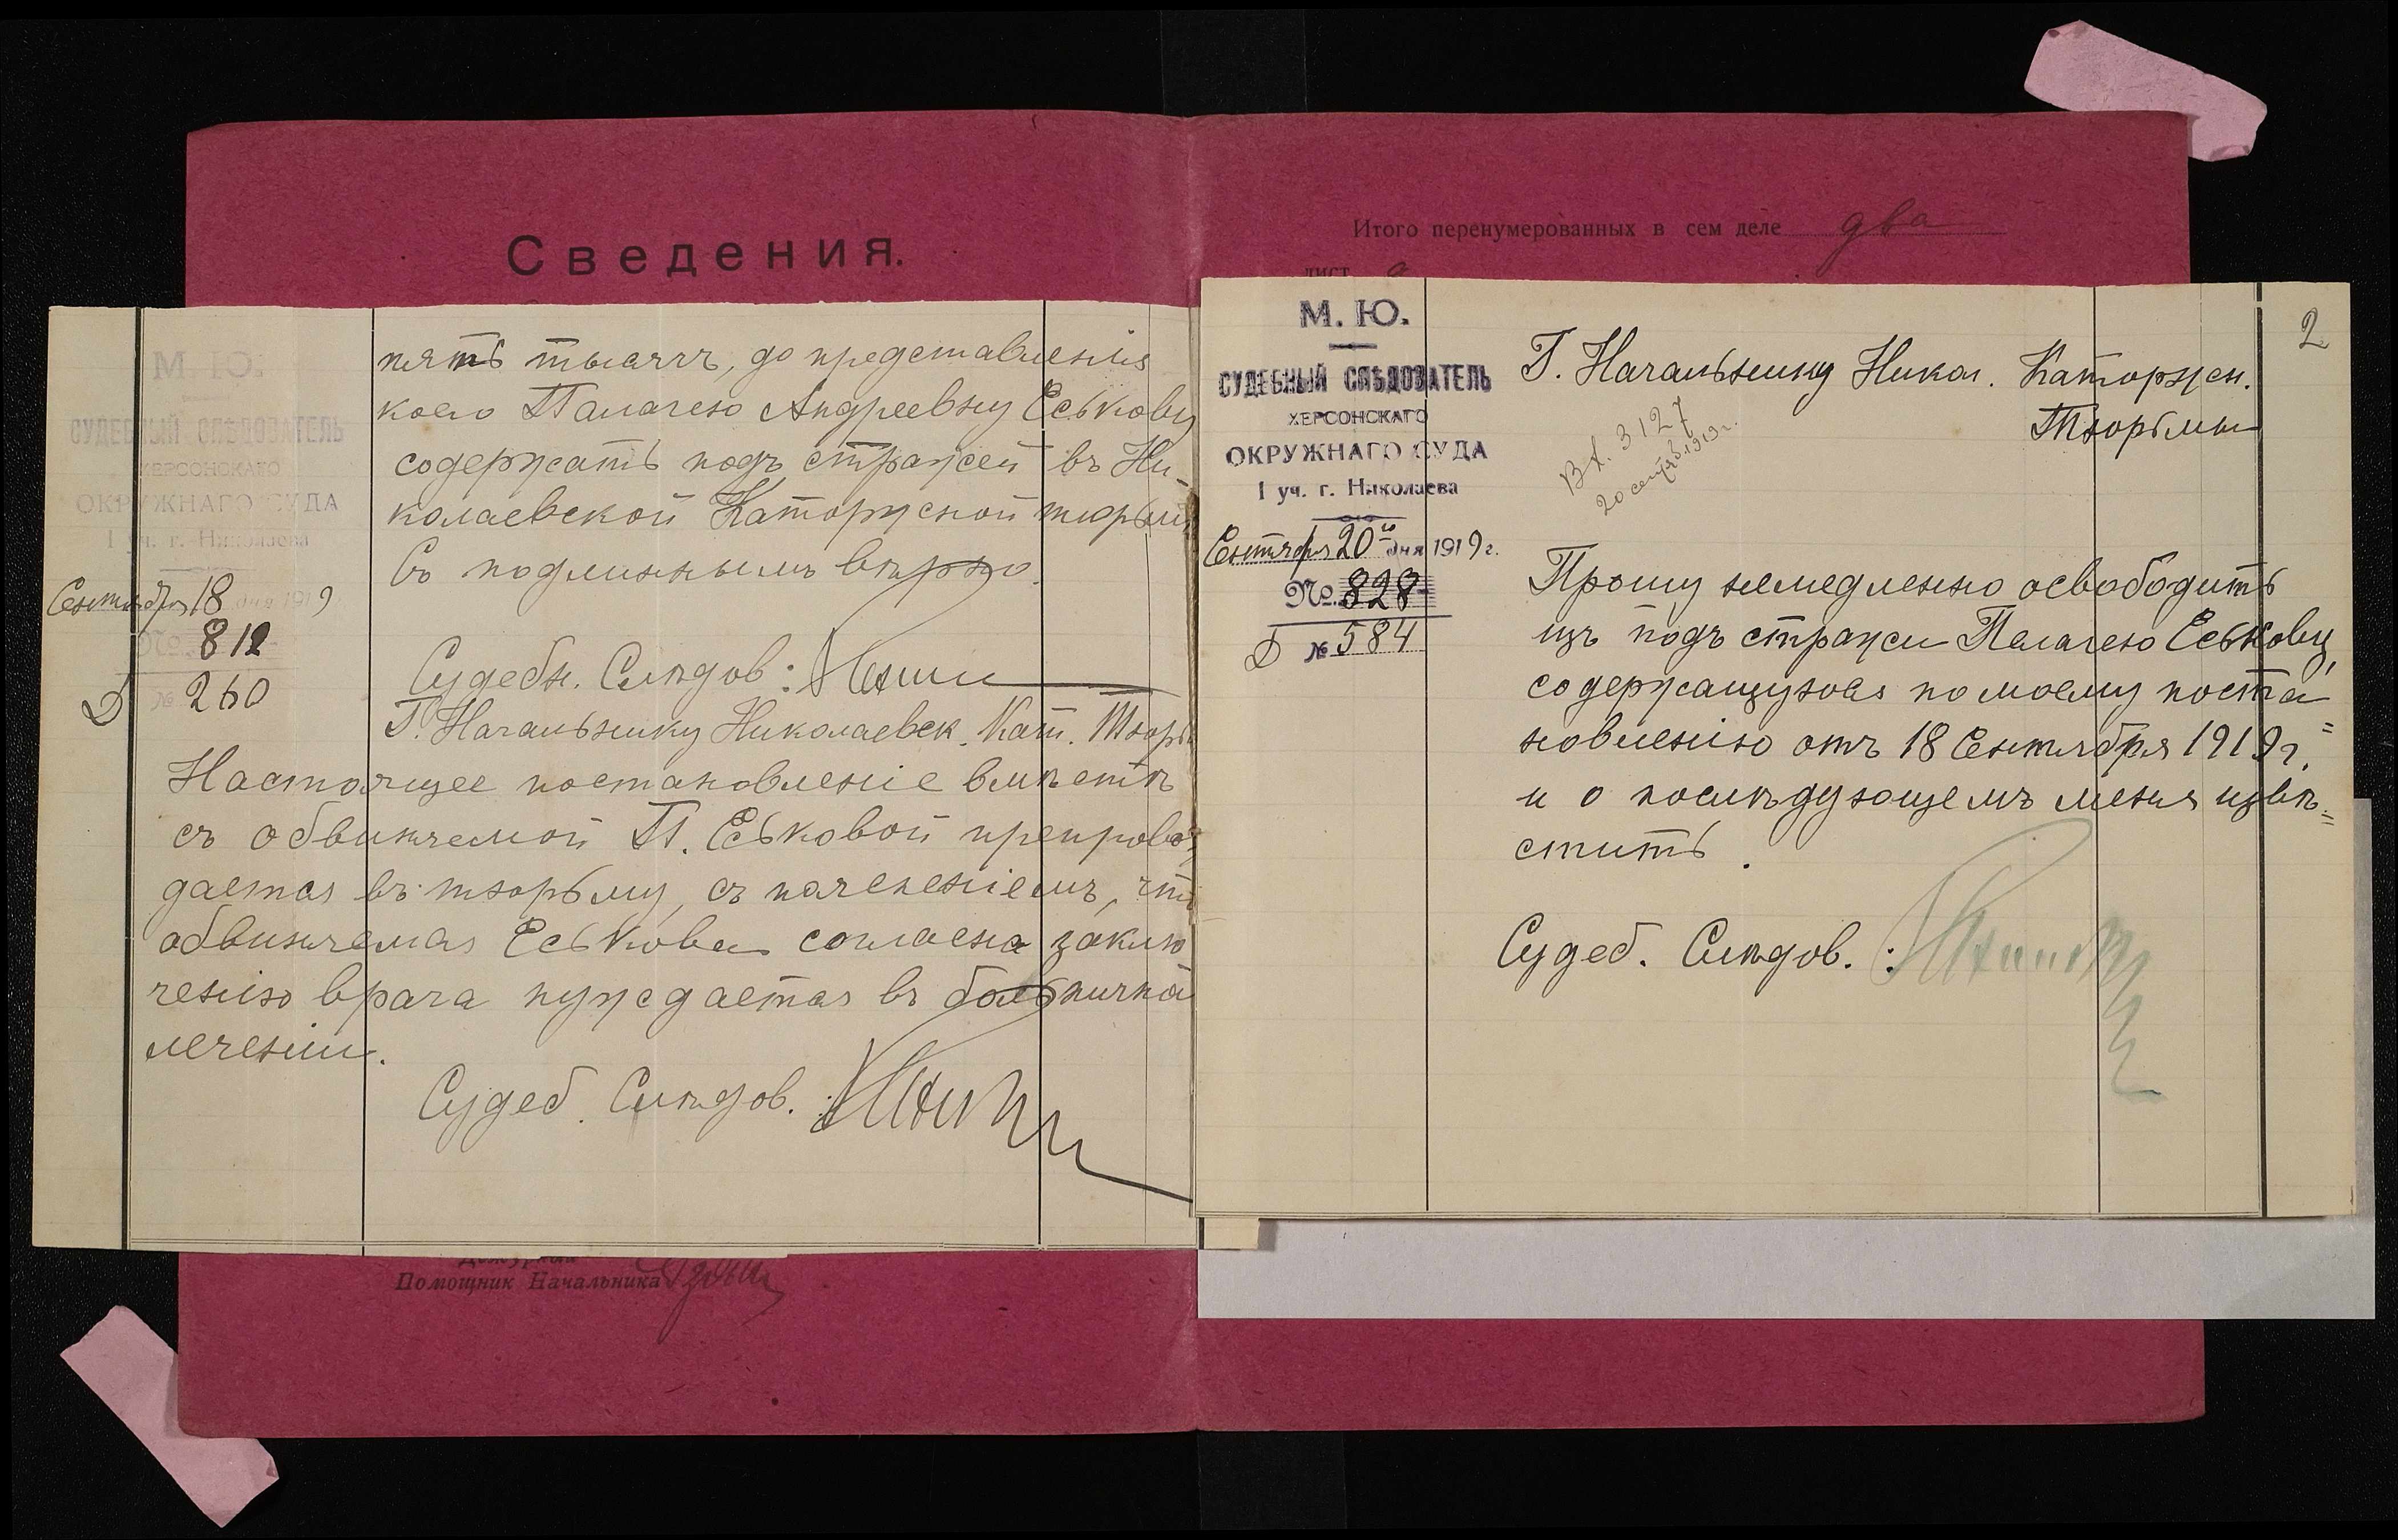 Сведения.
М. Ю.
СУДЕБНЫЙ СЛѢДОВАТЕЛЬ
ХЕРСОНСКАГО
ОКРУЖНАГО СУДА
I уч. г. Николаева
Сентября 18 дня 1919
№ 812
Д № 260
пять тысячъ, до представленія
коего Палагею Андреевну Еськову
содержать подъ стражей въ Ни-
колаевской Каторжной тюрьмѣ
Съ подлиннымъ вѣрно.
Судебн. Слѣдов:
Г. Начальнику Николаевск. Кат. Тюрь
Настоящее постановленіе вмѣстѣ
съ обвиняемой П. Еськовой препрово
дается въ тюрьму, съ поясненіемъ, что
обвиняемая Еськова согласна заклю
ченію врача нуждается въ больнична
леченіи.
Судеб. Слѣдов. :
Помощник Начальника
Итого перенумерованных в сем деле два
лист а
2
М. Ю.
СУДЕБНЫЙ СЛѢДОВАТЕЛЬ
ХЕРСОНСКАГО
ОКРУЖНАГО СУДА
I уч. г. Николаева
Сентября 20го дня 1919 г.
№ 828
Д № 584
Г. Начальнику Никол. Каторжн.
Тюрьмы
Вх. 3127
20 сентяб. 1919 г.
Прошу немедленно освободить
изъ подъ стражи Пелагею Еськову,
содержащуюся по моему поста=
новленію отъ 18 Сентября 1919 г.
и о послѣдующемъ меня извѣ=
стить.
Судеб. Слѣдов. :